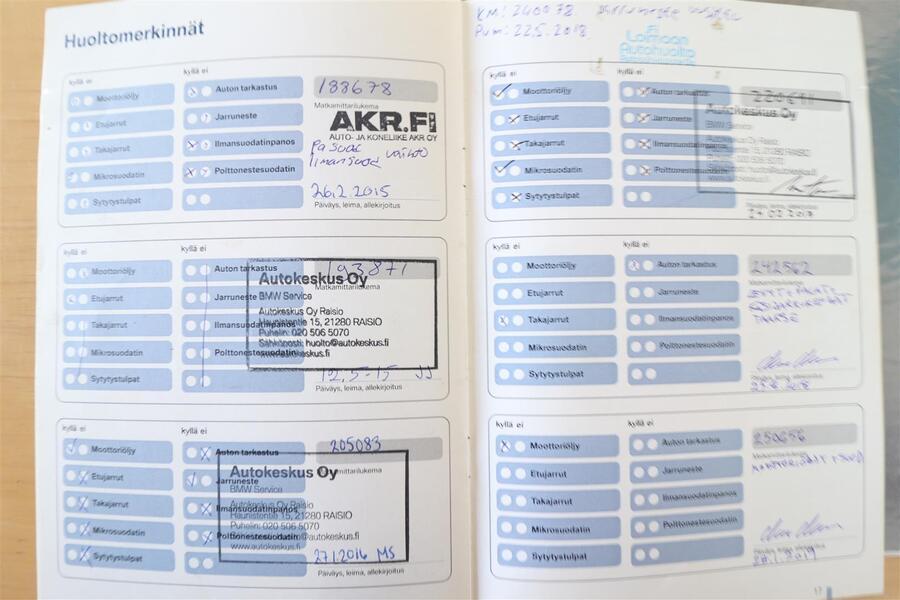 Huoltomerkinnät
kyllä ei
kyllä ei
Moottoriöljy
Auton tarkastus
188678
Matkamittarilukema
Etujarrut
Jarruneste
AKR.FI
AUTO- JA KONELIIKE AKR OY
Takajarrut
Ilmansuodatinpanos
Ilmansuod vaihto
Mikrosuodatin
Polttonestesuodatin
Sytytystulpat
26.2.2015
Päiväys, leima, allekirjoitus
kyllä ei
kyllä ei
Moottoriöljy
Auton tarkastus
193871
Matkamittarilukema
Autokeskus Oy
Etujarrut
Jarruneste
BMW Service
Takajarrut
Ilmansuodatinpanos
Autokeskus Oy Raisio
Haunistentie 15, 21280 RAISIO
Puhelin: 020 506 5070
Mikrosuodatin
Polttonestesuodatin
Sähköposti: huolto@autokeskus.fi
www.autokeskus.fi
Sytytystulpat
12.5-15 JJ
Päiväys, leima, allekirjoitus
kyllä ei
kyllä ei
Moottoriöljy
Auton tarkastus
205083
Matkamittarilukema
Autokeskus Oy
Etujarrut
Jarruneste
BMW Service
Takajarrut
Ilmansuodatinpanos
Autokeskus Oy Raisio
Haunistentie 15, 21280 RAISIO
Puhelin: 020 506 5070
Mikrosuodatin
Polttonestesuodatin
www.autokeskus.fi
Sytytystulpat
27.1.2016 MS
Päiväys, leima, allekirjoitus
KM: 240078.
Pvm: 22.5.2018
Loimaan
Autohuolto
kyllä ei
kyllä ei
Moottoriöljy
Auton tarkastus
Etujarrut
Jarruneste
Autokeskus Oy
BMW Service
Takajarrut
Ilmansuodatinpanos
Mikrosuodatin
Polttonestesuodatin
Sytytystulpat
24 02 2017
kyllä ei
kyllä ei
Moottoriöljy
Auton tarkastus
242562
Etujarrut
Jarruneste
Takajarrut
Ilmansuodatinpanos
Mikrosuodatin
Polttonestesuodatin
Sytytystulpat
kyllä ei
kyllä ei
Moottoriöljy
Auton tarkastus
250656
Etujarrut
Jarruneste
Takajarrut
Ilmansuodatinpanos
Mikrosuodatin
Polttonestesuodatin
Sytytystulpat
17